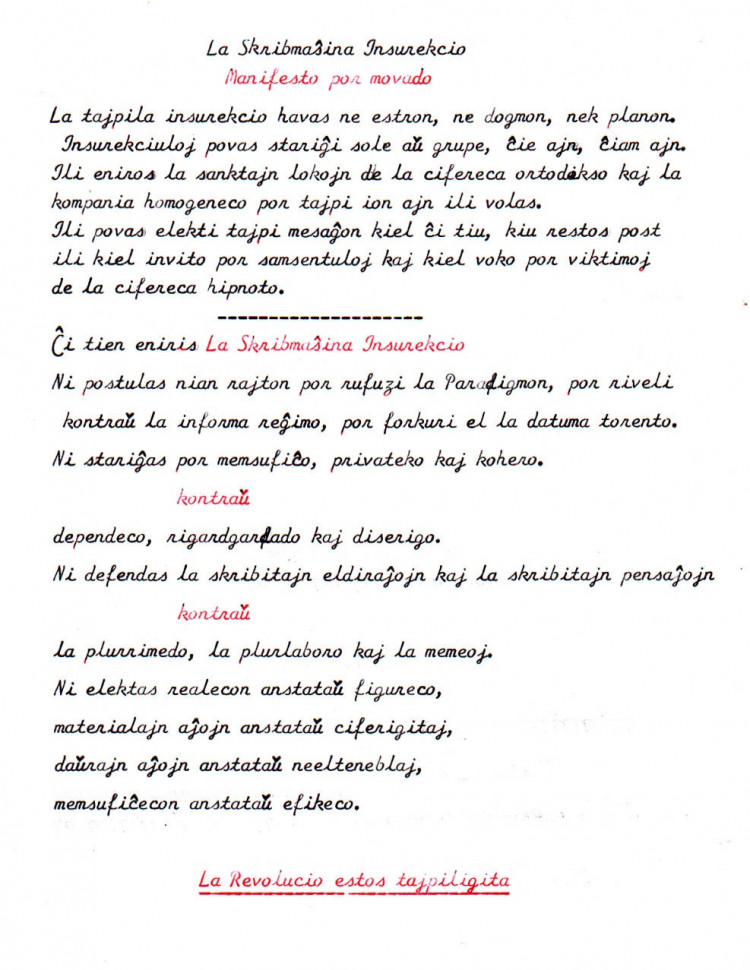 La Skribmaŝina Insurekcio
Manifesto por movado
La tajpila insurekcio havas ne estron, ne dogmon, nek planon.
Insurekciuloj povas stariĝi sole aŭ grupe, ĉie ajn, ĉiam ajn.
Ili eniros la sanktajn lokojn de la cifereca ortodokso kaj la
kompania homogeneco por tajpi ion ajn ili volas.
Ili povas elekti tajpi mesaĝon kiel ĉi tiu, kiu restos post
ili kiel invito por samsentuloj kaj kiel voko por viktimoj
de la cifereca hipnoto.
-------------------
Ĉi tien eniris La Skribmaŝina Insurekcio
Ni postulas nian rajton por rufuzi la Paradigmon, por riveli
kontraŭ la informa reĝimo, por forkuri el la datuma torento.
Ni stariĝas por memsufiĉo, privateko kaj kohero.
kontraŭ
dependeco, rigardgardado kaj diserigo.
Ni defendas la skribitajn eldiraĵojn kaj la skribitajn pensaĵojn
kontraŭ
la plurrimedo, la plurlaboro kaj la memeoj.
Ni elektas realecon anstataŭ figureco,
materialajn aĵojn anstataŭ ciferigitaj,
daŭrajn aĵojn anstataŭ neelteneblaj,
memsufiĉecon anstataŭ efikeco.
La Revolucio estos tajpiligita